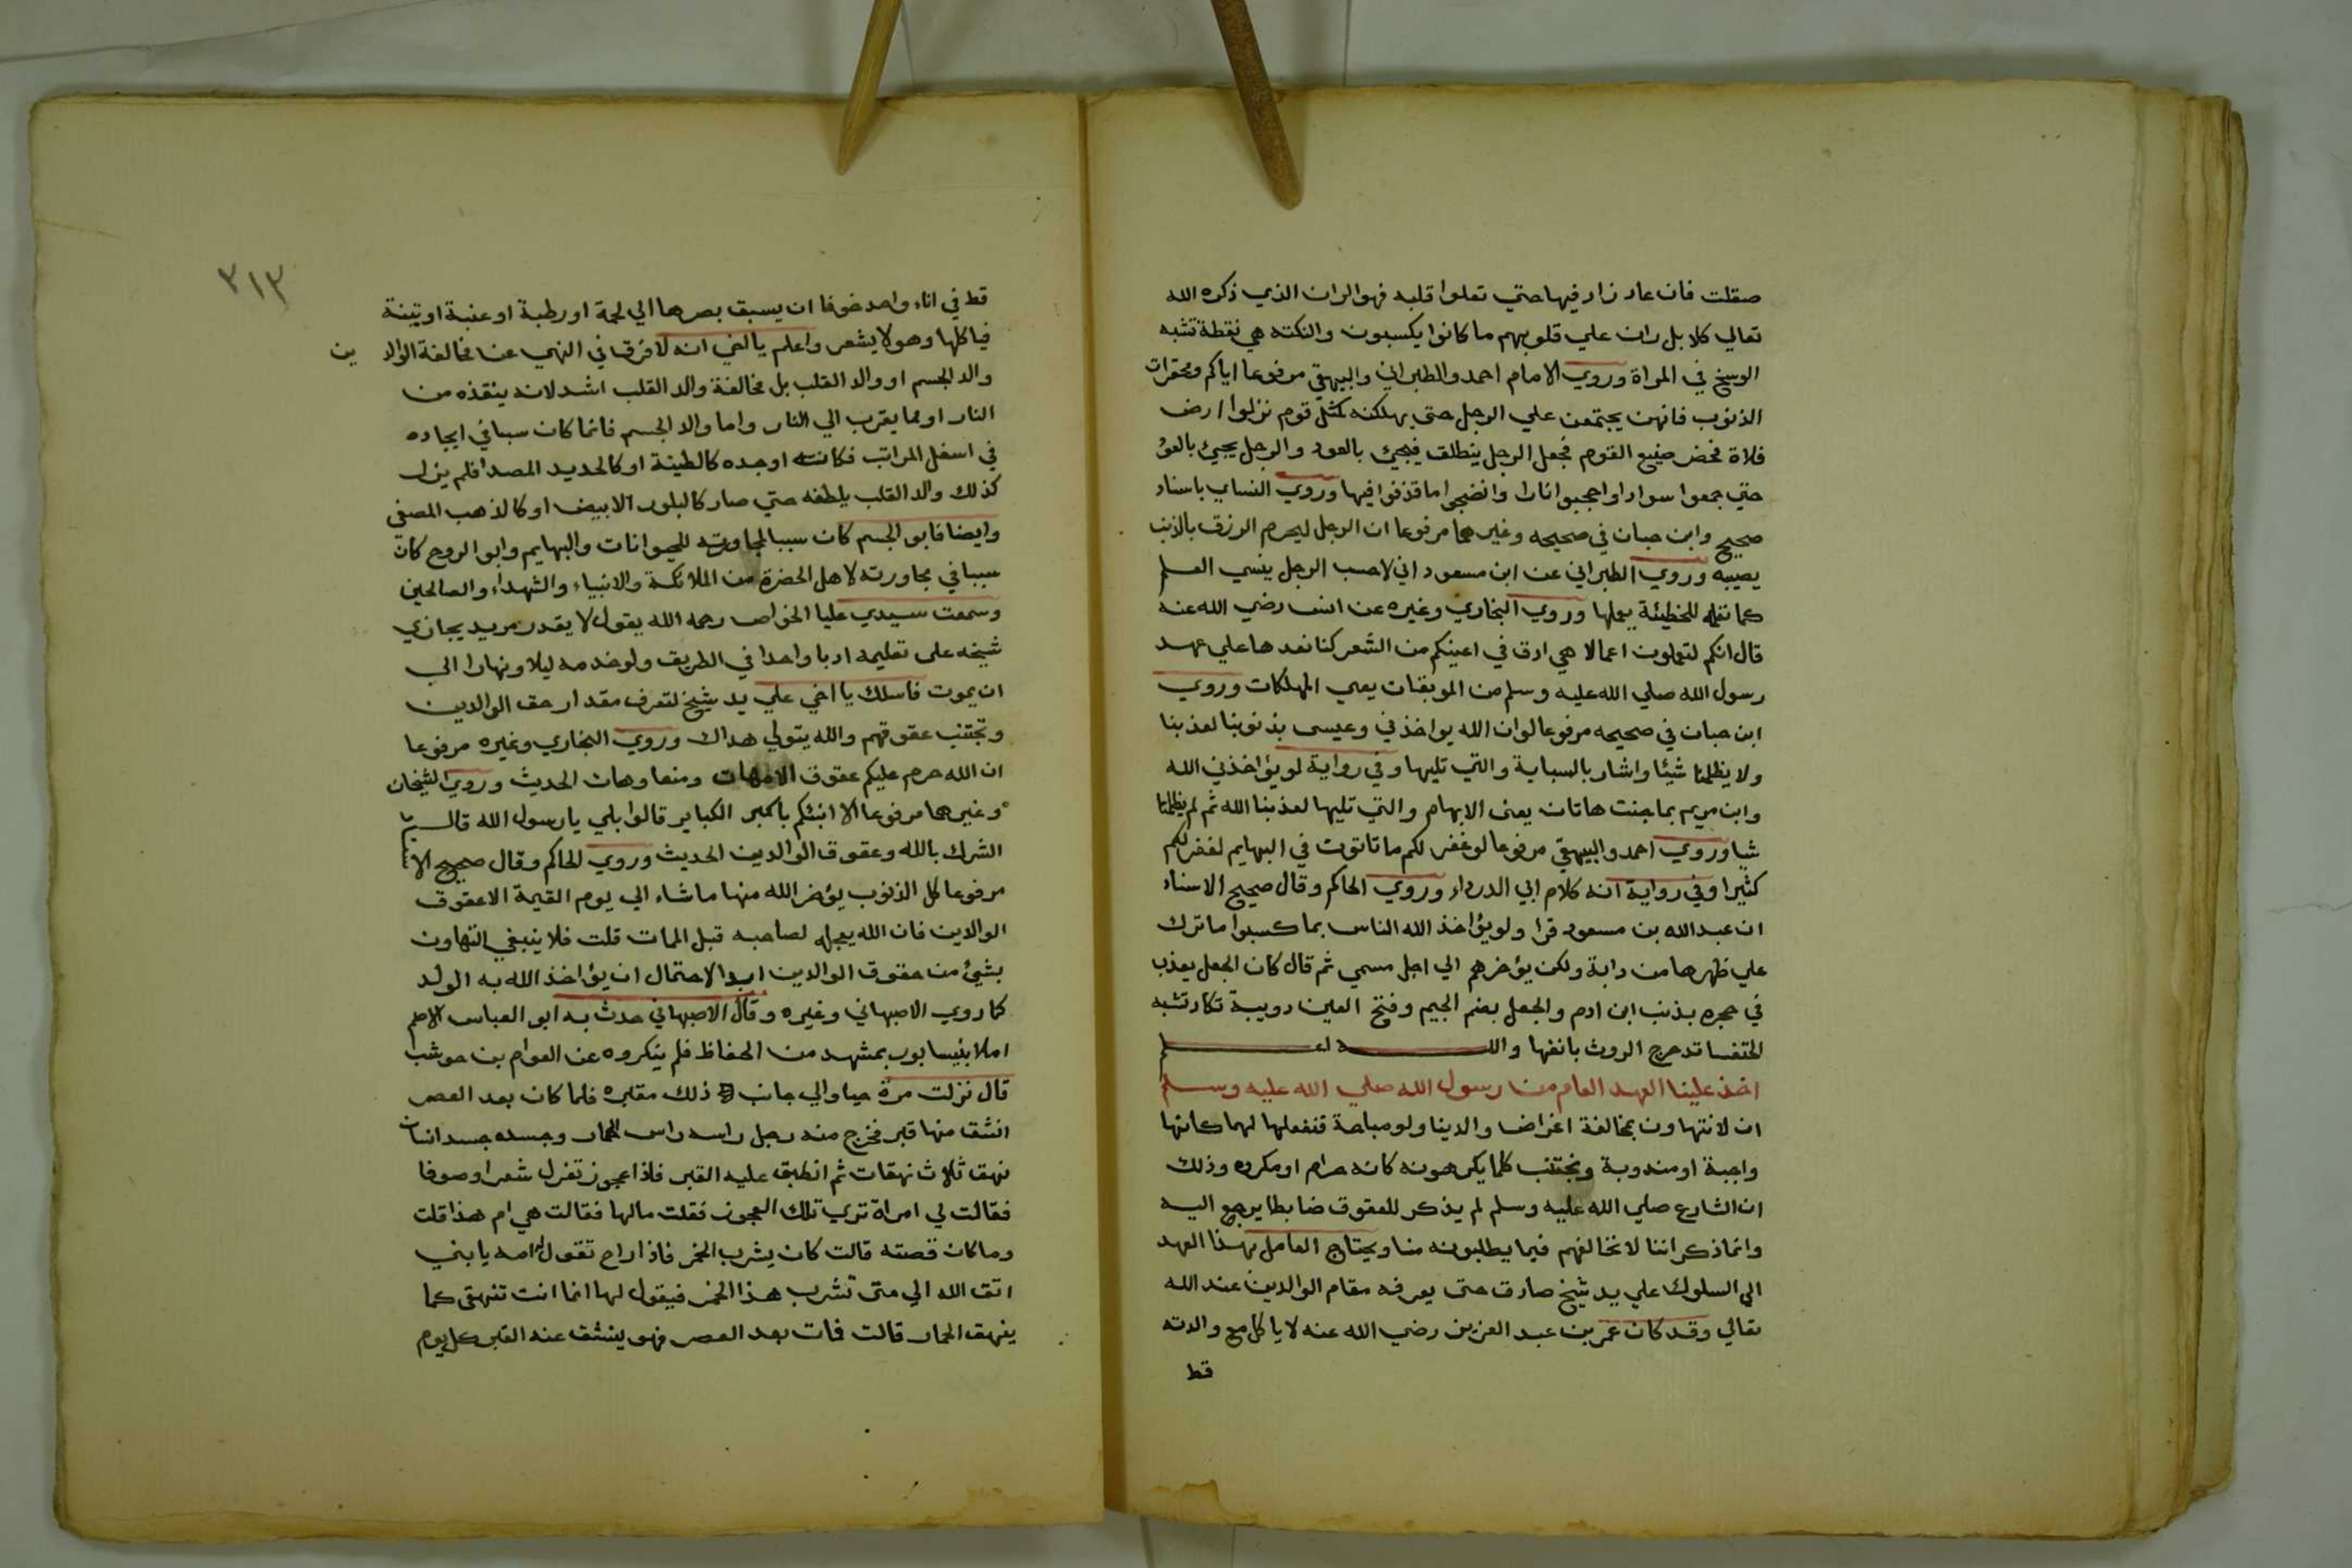 صقلت فان عاد زاد فيها حتي تعلوا قلبه فهو الران الذي ذكره الله
تعالي كلا بل ران علي قلوبهم ما كانوا يكسبون والنكته هي نقطة تشبه
الوسخ في المراة وروي الامام احمد والطبراني والبيهقي مرفوعا اياكم ومحقرات
الذنوب فانهن يجتمعن علي الرجل حتي يهلكنه كمثل قوم نزلوا ارض
فلاة فحضر صنيع القوم فجعل الرجل ينطلق فيجئ بالعود والرجل يجيئ بالعود
حتي جمعوا سوادا واججوا نارا وانضجوا ما قذفوا فيها وروي النساي باسناد
صحيح وابن حبان في صحيحه وغيرهما مرفوعا ان الرجل ليحرم الرزق بالذنب
يصيبه وروي الطبراني عن ابن مسعود اني لاحسب الرجل ينسي العلم
كما تعلمه للخطيئة يعملها وروي البخاري وغيره عن انس رضي الله عنه
قال انكم لتعملون اعمالا هي ادق في اعينكم من الشعر كنا نعدها علي عهد
رسول الله صلي الله عليه وسلم من الموبقات يعني المهلكات وروي
ابن حبان في صحيحه مرفوعا لو ان الله يواخذني وعيسي بذنوبنا لعذبنا
ولا يظلمنا شيئا واشار بالسبابة والتي تليها وفي رواية لو يؤاخذني الله
وابن مريم بما جنت هاتان يعني الابهام والتي تليها لعذبنا الله ثم لم يظلمنا
شيا وروي احمد والبيهقي مرفوعا لو غفر لكم ما تاتون في البهايم لغفر لكم
كثيرا وفي رواية انه كلام ابي الدرداء وروي الحاكم وقال صحيح الاسناد
ان عبد الله بن مسعود قرا ولو يؤاخذ الله الناس بما كسبوا ما ترك
علي ظهرها من دابة ولكن يؤخرهم الي اجل مسمي ثم قال كان الجعل يعذب
في جحره بذنب ابن ادم والجعل بضم الجيم وفتح العين دويبة تكاد تشبه
الخنفسا تدحرج الروث بانفها والله اعلم
اخذ علينا العهد العام من رسول الله صلي الله عليه وسلم
ان لا نتهاون بمخالفة اغراض والدينا ولو مباحة فنفعلها لهما كانها
واجبة او مندوبة ونجتنب كلما يكرهونه كانه حرام او مكروه وذلك
ان الشارع صلي الله عليه وسلم لم يذكر للعقوق ضابطا يرجع اليه
وانما ذكر اننا لا نخالفهم فيما يطلبونه منا ويحتاج العامل بهذا العهد
الي السلوك علي يد شيخ صادق حتي يعرفه مقام الوالدين عند الله
تعالي وقد كان عمر بن عبد العزيز رضي الله عنه لا ياكل مع والدته
قط
٣١٣
قط في اناء واحد خوفا ان يسبق بصرها الي لحمة او رطبة او عنبة او تينة
فياكلها وهو لا يشعر واعلم يا اخي انه لا فرق في النهي عن مخالفة الوالدين
والد الجسم او والد القلب بل مخالفة والد القلب اشد لانه ينقذه من
النار او مما يقرب الي النار واما والد الجسم فانما كان سببا في ايجاده
في اسفل المراتب فكانه اوجده كالطينة او كالحديد المصدا فلم يزل
كذلك والد القلب يلطفه حتي صار كالبلور الابيض او كالذهب المصفي
وايضا فابو الجسم كان سببا لمجاورته للحيوانات والبهايم وابو الروح كان
سببا في مجاورته لاهل الحضرة من الملائكة والانبياء والشهداء والصالحين
وسمعت سيدي عليا الخواص رحمه الله يقول لا يقدر مريد يجازي
شيخه على تعليمه ادبا واحدا في الطريق ولو خدمه ليلا ونهارا الي
ان يموت فاسلك يا اخي علي يد شيخ لتعرف مقدار حق الوالدين
وتجتنب عقوقهم والله يتولي هداك وروي البخاري وغيره مرفوعا
ان الله حرم عليكم عقوق الامهات ومنعا وهات الحديث وروي الشيخان
وغيرهما مرفوعا الا انبئكم باكبر الكباير قالوا بلي يا رسول الله قال
الشرك بالله وعقوق الوالدين الحديث وروي الحاكم وقال صحيح
مرفوعا كل الذنوب يؤخر الله منها ما شاء الي يوم القيمة الا عقوق
الوالدين فان الله يعجله لصاحبه قبل الممات قلت فلا ينبغي التهاون
بشيئ من عقوق الوالدين ابدا لاحتمال ان يؤاخذ الله به الولد
كما روي الاصبهاني وغيره وقال الاصبهاني حدث به ابو العباس الاصم
املا بنيسابور بمشهد من الحفاظ فلم ينكروه عن العوام بن حوشب
قال نزلت مرة حيا والي جانب ذلك مقبره فلما كان بعد العصر
انشق منها قبر فخرج منه رجل راسه راس الحمار وجسده جسد انسان
نهق ثلاث نهقات ثم انطبق عليه القبر فاذا عجوز تغزل شعرا وصوفا
فقالت لي امراة تري تلك العجوز فقلت مالها فقالت هي ام هذا قلت
وما كان قصته قالت كان يشرب الخمر فاذا راح تقول له امه يا بني
اتق الله الي متي تشرب هذا الخمر فيقول لها انما انت تنهقي كما
ينهق الحمار قالت فمات بعد العصر فهو ينشق عنه القبر كل يوم